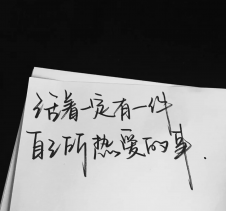 活着一定有一件
自己所热爱的事.